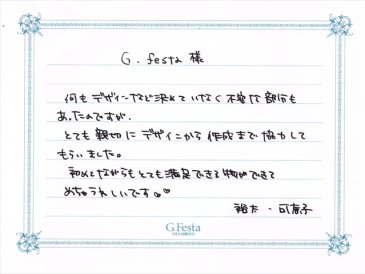 G. festa 様
何もデザインなど決めていなく不安な部分も
あったのですが、
とても親切にデザインから作成まで協力して
もらいました。
初めてながらもとても満足できる物ができて
めちゃうれしいです。♡
裕太・可奈子
G.Festa